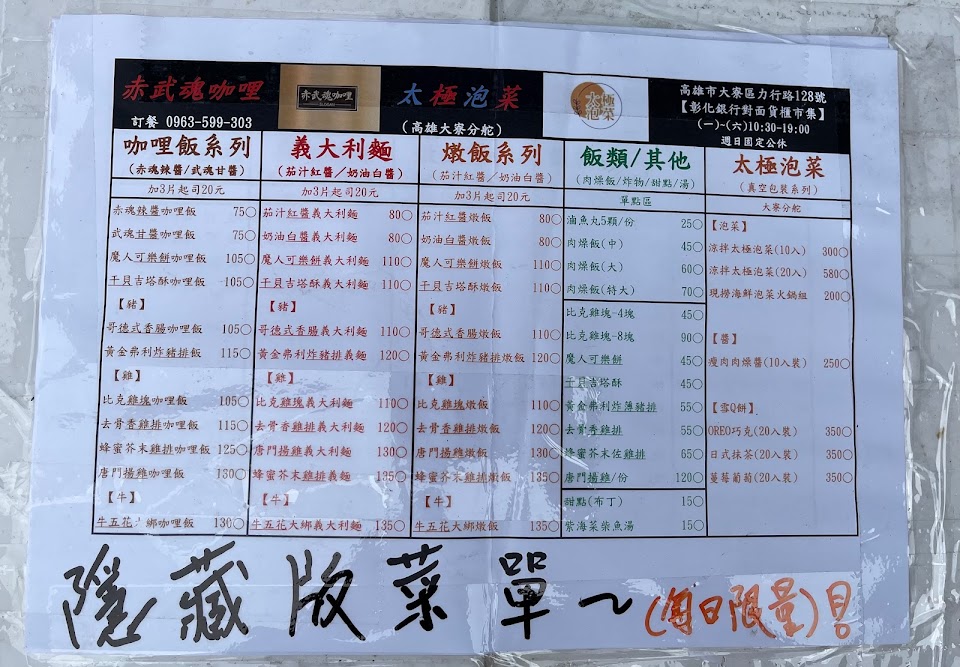 赤武魂咖哩
訂餐 0963-599-303
赤武魂咖哩
太極泡菜
(高雄大寮分舵)
太極泡菜
高雄市大寮區力行路128號
【彰化銀行對面貨櫃市集】
(一)-(六)10:30-19:00
週日固定公休
咖哩飯系列
(赤魂辣醬/武魂甘醬)
加3片起司20元
赤魂辣醬咖哩飯 75○
武魂甘醬咖哩飯 75○
魔人可樂餅咖哩飯 105○
干貝吉塔酥咖哩飯 105○
【豬】
哥德式香腸咖哩飯 105○
黃金弗利炸豬排飯 115○
【雞】
比克雞塊咖哩飯 105○
去骨香雞排咖哩飯 115○
蜂蜜芥末雞排咖哩飯 125○
唐門揚雞咖哩飯 130○
【牛】
牛五花大綁咖哩飯 130○
義大利麵
(茄汁紅醬/奶油白醬)
加3片起司20元
茄汁紅醬義大利麵 80○
奶油白醬義大利麵 80○
魔人可樂餅義大利麵 110○
干貝吉塔酥義大利麵 110○
【豬】
哥德式香腸義大利麵 110○
黃金弗利炸豬排義麵 120○
【雞】
比克雞塊義大利麵 110○
去骨香雞排義大利麵 120○
唐門揚雞義大利麵 130○
蜂蜜芥末雞排義麵 135○
【牛】
牛五花大綁義大利麵 135○
燉飯系列
(茄汁紅醬/奶油白醬)
加3片起司20元
茄汁紅醬燉飯 80○
奶油白醬燉飯 80○
魔人可樂餅燉飯 110○
干貝吉塔酥燉飯 110○
【豬】
哥德式香腸燉飯 110○
黃金弗利炸豬排燉飯 120○
【雞】
比克雞塊燉飯 110○
去骨香雞排燉飯 120○
唐門揚雞燉飯 130○
蜂蜜芥末雞排燉飯 135○
【牛】
牛五花大綁燉飯 135○
飯類/其他
(肉燥飯/炸物/甜點/湯)
單點區
滷魚丸5顆/份 25○
肉燥飯(中) 45○
肉燥飯(大) 60○
肉燥飯(特大) 70○
比克雞塊-4塊 45○
比克雞塊-8塊 90○
魔人可樂餅 45○
干貝吉塔酥 45○
黃金弗利炸薄豬排 55○
去骨香雞排 55○
蜂蜜芥末佐雞排 65○
唐門揚雞/份 120○
甜點(布丁) 15○
紫海菜柴魚湯 15○
太極泡菜
(真空包裝系列)
大寮分舵
【泡菜】
涼拌太極泡菜(10入) 300○
涼拌太極泡菜(20入) 580○
現撈海鮮泡菜火鍋組 200○
【醬】
瘦肉肉燥醬(10入裝) 250○
【雪Q餅】
OREO巧克(20入裝) 350○
日式抹茶(20入裝) 350○
蔓莓葡萄(20入裝) 350○
隱藏版菜單~(每日限量)